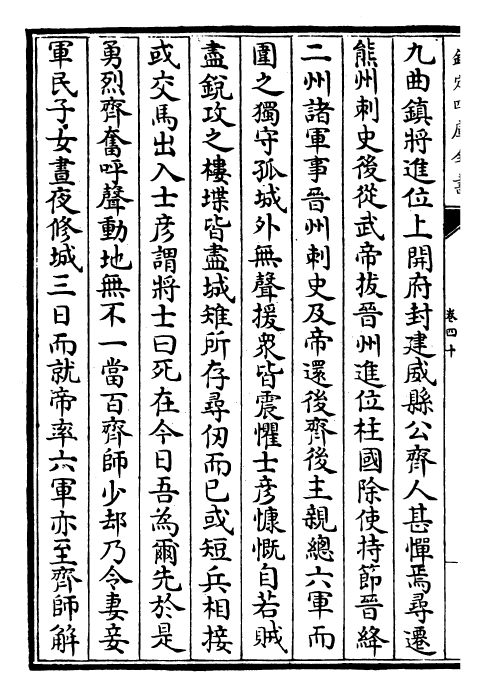 欽定四庫全書
卷四十
九曲鎮將進位上開府封建威縣公齊人甚憚焉尋遷
熊州刺史後從武帝拔晉州進位柱國除使持節晉絳
二州諸軍事晉州刺史及帝還後齊後主親總六軍而
圍之獨守孤城外無聲援衆皆震懼士彥慷慨自若賊
盡銳攻之樓堞皆盡城雉所存尋仞而已或短兵相接
或交馬出入士彥謂將士曰死在今日吾為爾先於是
勇烈齊奮呼聲動地無不一當百齊師少却乃令妻妾
軍民子女晝夜修城三日而就帝率六軍亦至齊師解